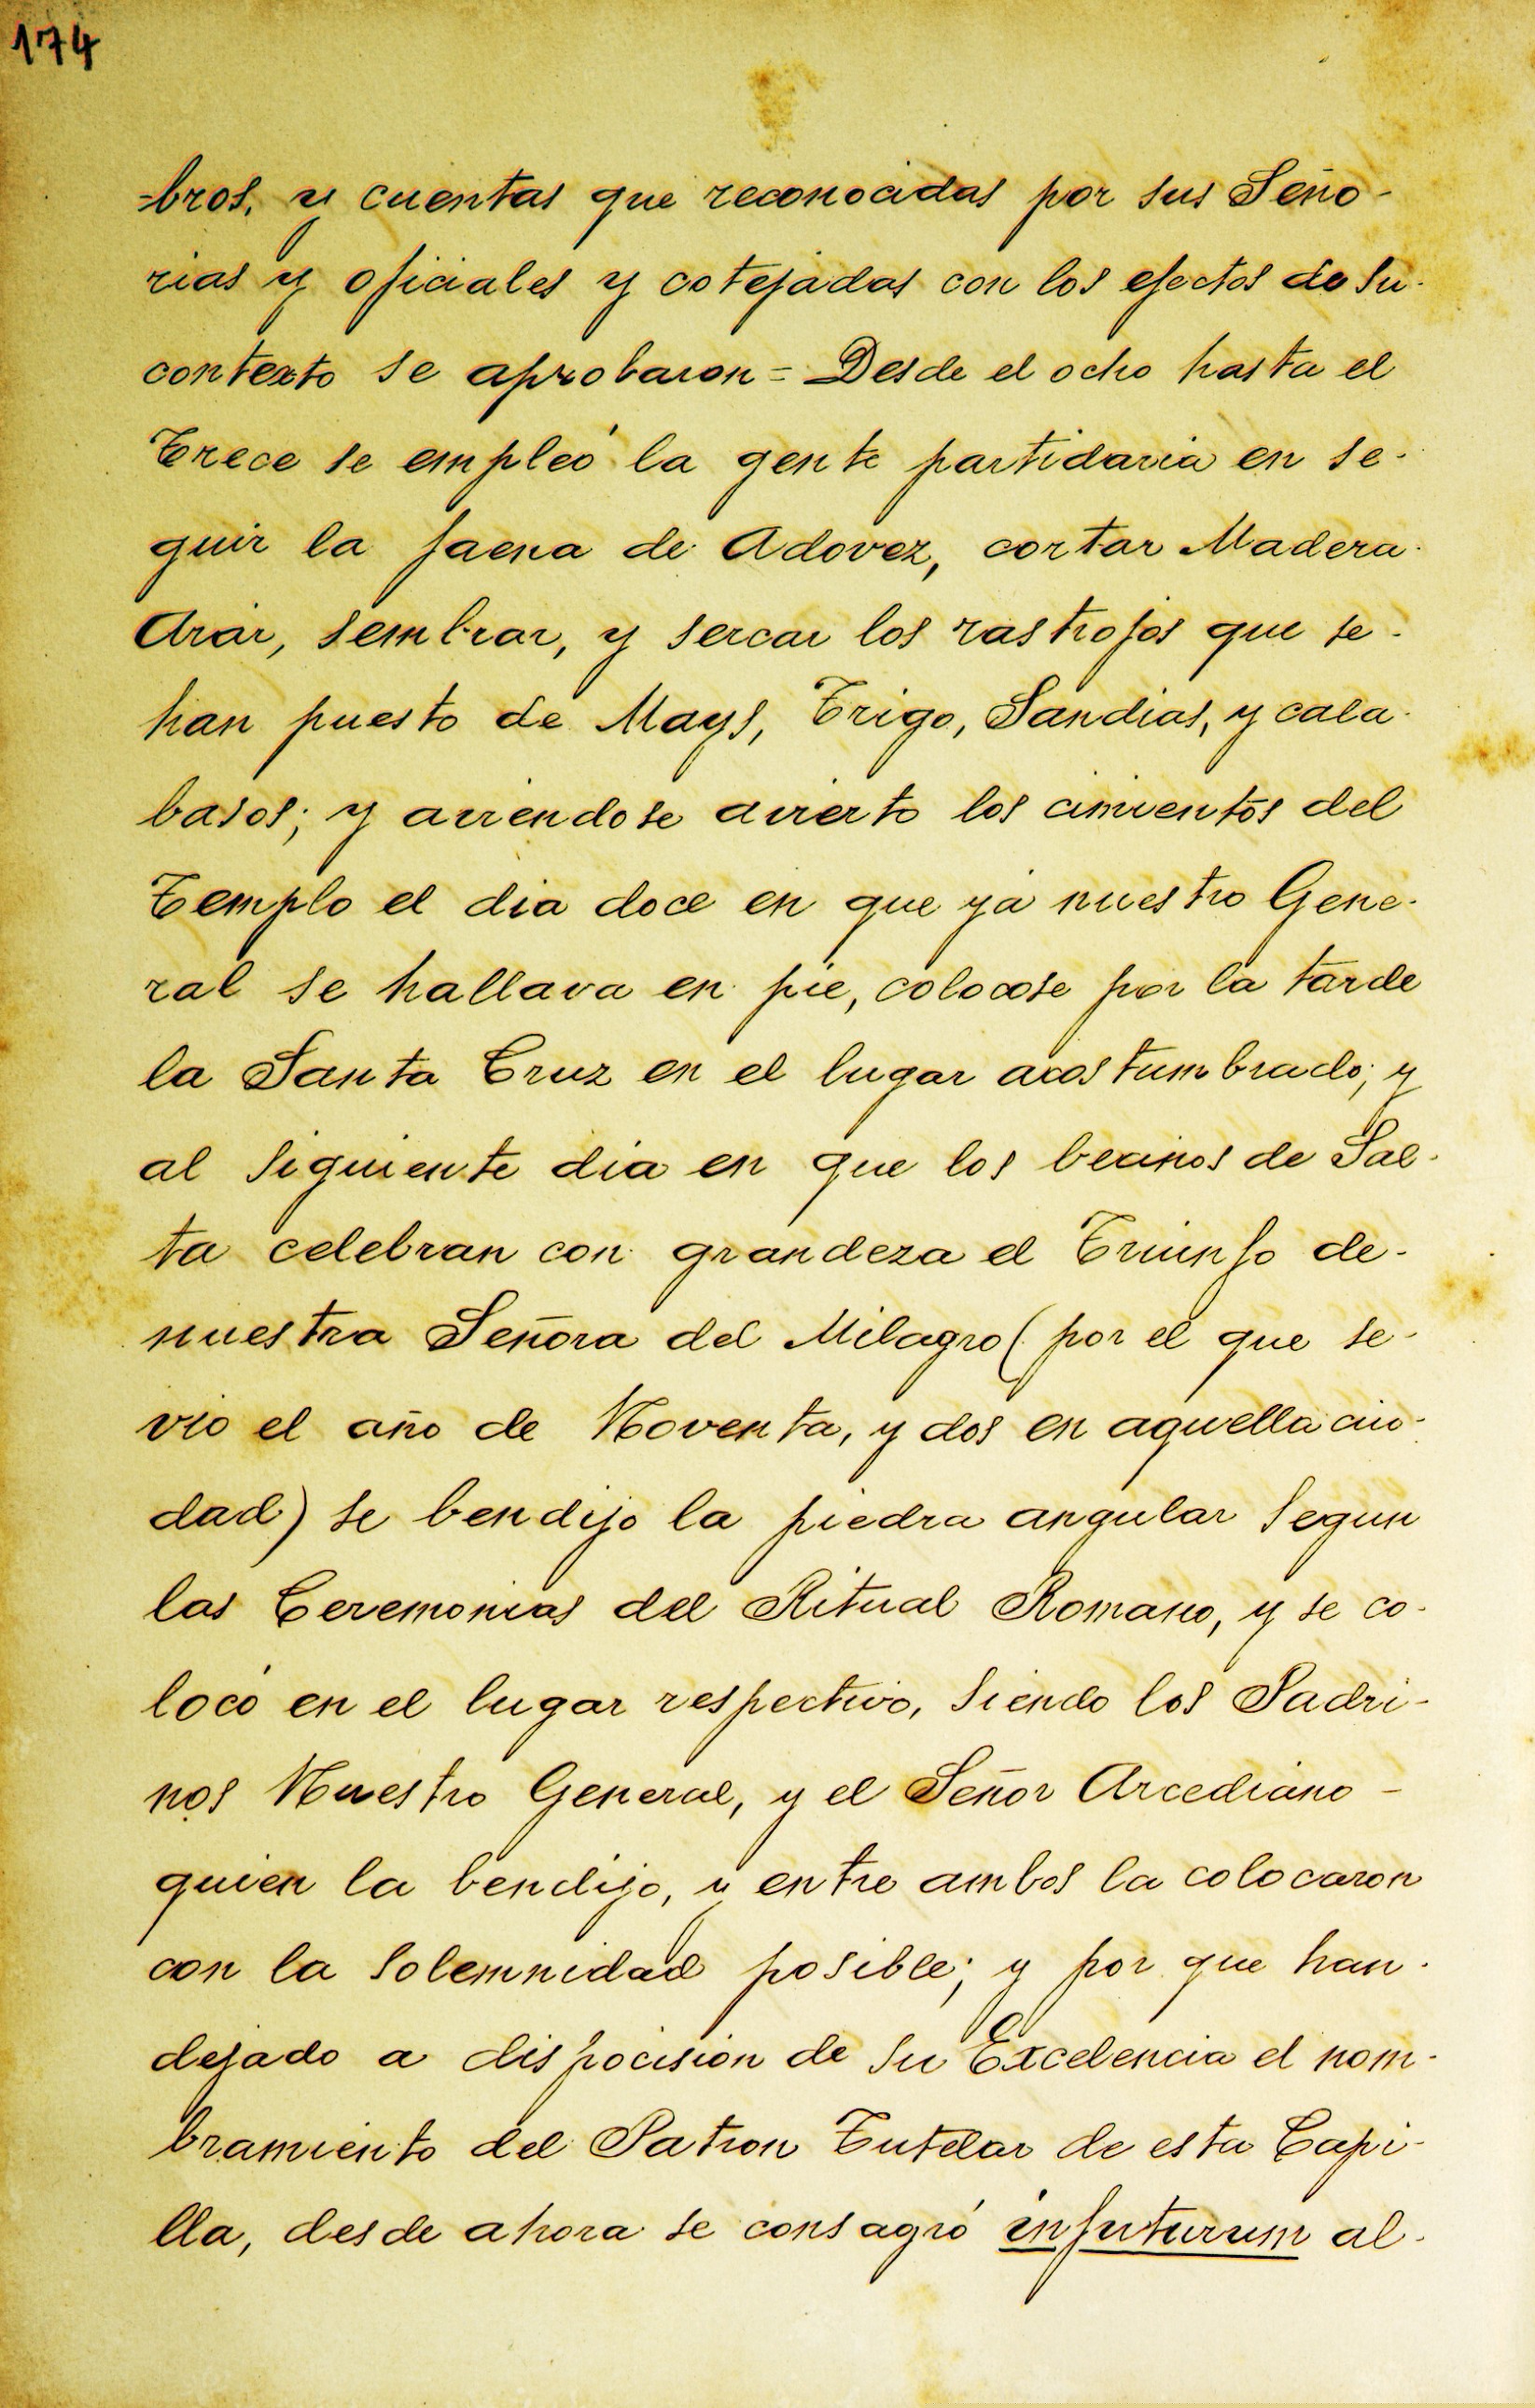 174
=bros, y cuentas que reconocidas por sus Seño-
rias y oficiales y cotejadas con los efectos de su-
contexto se aprobaron = Desde el ocho hasta el
Trece se empleó la gente partidaria en se-
guir la faena de Adovez, cortar Madera-
Arar, sembrar, y sercar los rastrojos que se-
han puesto de Mays, Trigo, Sandias, y cala-
basos; y aviendose avierto los cimientos del
Templo el dia doce en que ya nuestro Gene-
ral se hallava en pie, colocose por la tarde
la Santa Cruz en el lugar acostumbrado; y
al siguiente dia en que los becinos de Sal-
ta celebran con grandeza el Triunfo de-
nuestra Señora del Milagro (por el que se-
vio el año de Noventa, y dos en aquella ciu-
dad) se bendijo la piedra angular segun
las Ceremonias del Ritual Romano, y se co-
locó en el lugar respectivo, siendo los Padri-
nos Nuestro General, y el Señor Arcediano -
quien la bendijo, y entre ambos la colocaron
con la solemnidad posible; y por que han-
dejado a dispocision de su Excelencia el nom-
bramiento del Patron Tutelar de esta Capi-
lla, desde ahora se consagró infuturum al-